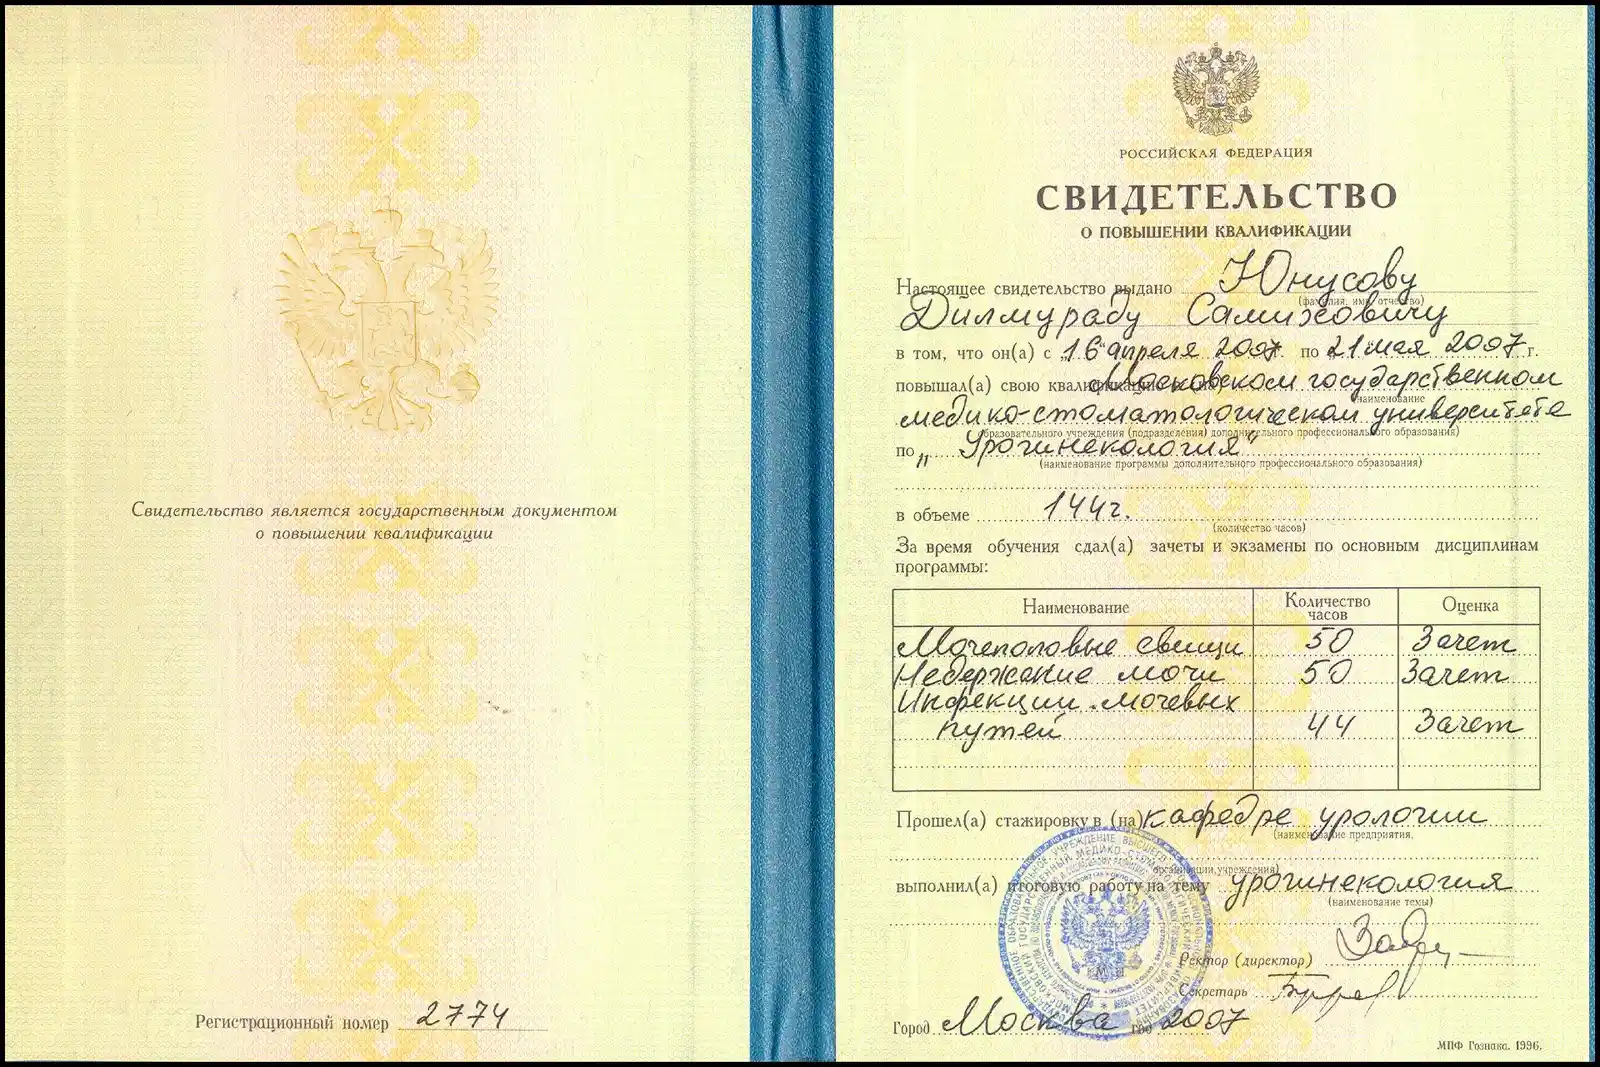 Свидетельство является государственным документом
о повышении квалификации
Регистрационный номер 2774
РОССИЙСКАЯ ФЕДЕРАЦИЯ
СВИДЕТЕЛЬСТВО
О ПОВЫШЕНИИ КВАЛИФИКАЦИИ
Настоящее свидетельство выдано Юнусову
(фамилия, имя, отчество)
Дилмураду
в том, что он(а) с „16“ апреля 2007 г. по „21“ мая 2007 г.
повышал(а) свою квалификацию в (на) Московском государственном
(наименование
медико-стоматологическом университете
образовательного учреждения (подразделения) дополнительного профессионального образования)
по „Урогинекология“
(наименование программы дополнительного профессионального образования)
в объеме 144 г.
(количество часов)
За время обучения сдал(а) зачеты и экзамены по основным дисциплинам
программы:
Наименование Количество часов Оценка
Мочеполовые свищи 50 Зачет
Недержание мочи 50 Зачет
Инфекции мочевых
путей 44 Зачет
Прошел(а) стажировку в (на) кафедре урологии
(наименование предприятия,
организации, учреждения)
выполнил(а) итоговую работу на тему урогинекология
(наименование темы)
Ректор (директор)
Секретарь
Город Москва год 2007
МПФ Гознака. 1996.